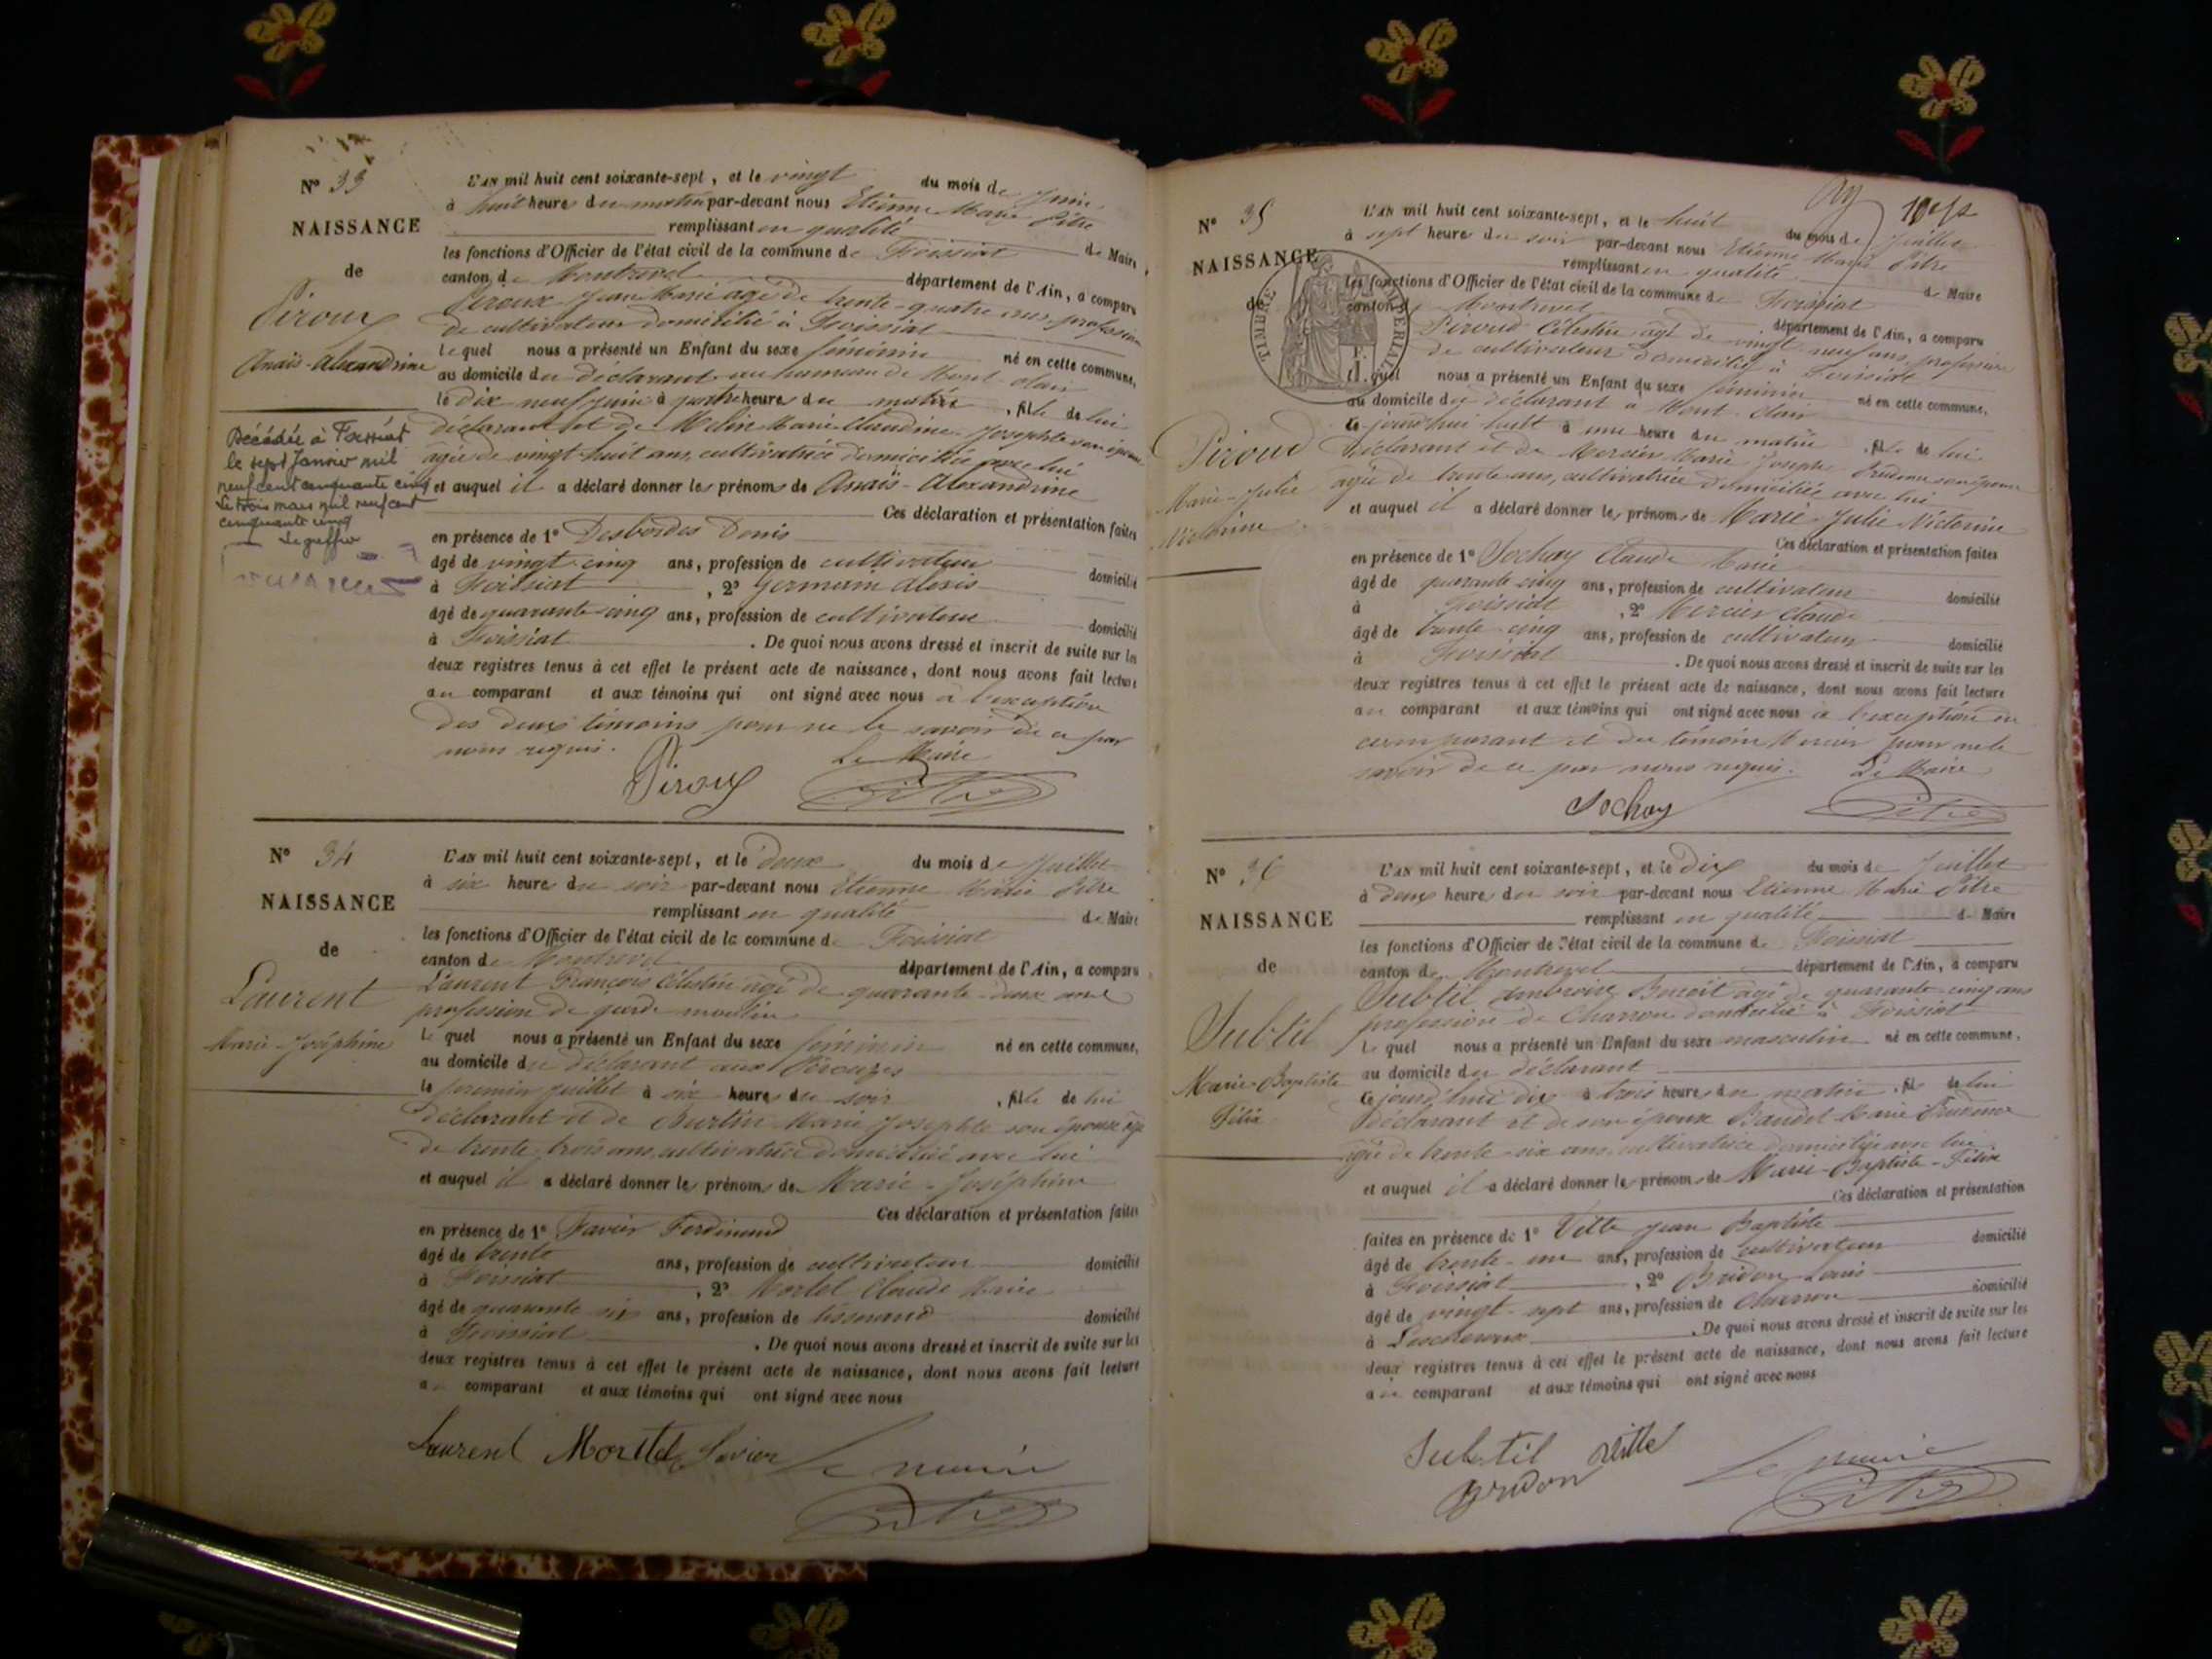 N° 33
NAISSANCE
de
Piroux
Anaïs-Alexandrine
Décédée à Foissiat
le sept Janvier mil
neuf cent cinquante cinq
Le trois mars mil neuf cent
cinquante cinq
Le greffier
L'AN mil huit cent soixante-sept, et le vingt du mois de Juin
à huit heures du matin par-devant nous Etienne Marie Pitre
remplissant en qualité de Maire
les fonctions d'Officier de l'état civil de la commune de Foissiat
canton de Montrevel département de l'Ain, a comparu
Piroux Jean Marie agé de trente-quatre ans, profession
de cultivateur domicilié à Foissiat
Lequel nous a présenté un Enfant du sexe féminin né en cette commune,
au domicile du déclarant au hameau de Mont-clair
le dix neuf juin à quatre heures du matin, fille de lui
déclarant et de Melin Marie Claudine Josephte son épouse
agée de vingt-huit ans, cultivatrice domiciliée avec lui
et auquel il a déclaré donner les prénoms de Anaïs-Alexandrine
Ces déclaration et présentation faites
en présence de 1° Desbordes Denis
âgé de vingt cinq ans, profession de cultivateur domicilié
à Foissiat, 2° Germain Alexis
âgé de quarante-cinq ans, profession de cultivateur domicilié
à Foissiat. De quoi nous avons dressé et inscrit de suite sur les
deux registres tenus à cet effet le présent acte de naissance, dont nous avons fait lecture
au comparant et aux témoins qui ont signé avec nous à l'exception
des deux témoins pour ne le savoir de ce par
nous requis.
Le Maire
Piroux Pitre
N° 34
NAISSANCE
de
Laurent
Marie-Joséphine
L'AN mil huit cent soixante-sept, et le deux du mois de Juillet
à six heures du soir par-devant nous Etienne Marie Pitre
remplissant en qualité de Maire
les fonctions d'Officier de l'état civil de la commune de Foissiat
canton de Montrevel département de l'Ain, a comparu
Laurent François Célestin agé de quarante-deux ans
profession de garde moulin
Le quel nous a présenté un Enfant du sexe féminin né en cette commune,
au domicile du déclarant aux Pérouzes
le premier juillet à six heures du soir, fille de lui
déclarant et de Burtin Marie Josephte son épouse agée
de trente trois ans, cultivatrice domiciliée avec lui
et auquel il a déclaré donner les prénoms de Marie-Joséphine
Ces déclaration et présentation faites
en présence de 1° Favier Ferdinand
âgé de trente ans, profession de cultivateur domicilié
à Foissiat, 2° Mortel Claude Marie
âgé de quarante six ans, profession de tisserand domicilié
à Foissiat. De quoi nous avons dressé et inscrit de suite sur les
deux registres tenus à cet effet le présent acte de naissance, dont nous avons fait lecture
au comparant et aux témoins qui ont signé avec nous
Laurent Mortel Favier Le maire
Pitre
N° 35
NAISSANCE
de
TIMBRE IMPERIAL
Piroud
Marie-Julie
Victorine
L'AN mil huit cent soixante-sept, et le huit du mois de Juillet
à sept heures du soir par-devant nous Etienne Marie Pitre
remplissant en qualité de Maire
les fonctions d'Officier de l'état civil de la commune de Foissiat
canton de Montrevel département de l'Ain, a comparu
Piroud Célestin agé de vingt-neuf ans, profession
de cultivateur domicilié à Foissiat
Le quel nous a présenté un Enfant du sexe féminin né en cette commune,
au domicile du déclarant à Mont-clair
ce jourd'hui huit à une heure du matin, fille de lui
déclarant et de Mercier Marie Josephe Prudence son épouse
agée de trente ans, cultivatrice domiciliée avec lui
et auquel il a déclaré donner les prénoms de Marie-Julie-Victorine
Ces déclaration et présentation faites
en présence de 1° Sochay Claude Marie
âgé de quarante-cinq ans, profession de cultivateur domicilié
à Foissiat, 2° Mercier Claude
âgé de trente-cinq ans, profession de cultivateur domicilié
à Foissiat. De quoi nous avons dressé et inscrit de suite sur les
deux registres tenus à cet effet le présent acte de naissance, dont nous avons fait lecture
au comparant et aux témoins qui ont signé avec nous à l'exception du
comparant et du témoin Mercier pour ne le
savoir de ce par nous requis. Le Maire
Sochay Pitre
N° 36
NAISSANCE
de
Subtil
Marie-Baptiste
Félix
L'AN mil huit cent soixante-sept, et le dix du mois de Juillet
à deux heures du soir par-devant nous Etienne Marie Pitre
remplissant en qualité de Maire
les fonctions d'Officier de l'état civil de la commune de Foissiat
canton de Montrevel département de l'Ain, a comparu
Subtil Ambroise Benoit agé de quarante-cinq ans
profession de Charron domicilié à Foissiat
Le quel nous a présenté un Enfant du sexe masculin né en cette commune,
au domicile du déclarant
ce jourd'hui dix à trois heures du matin, fils de lui
déclarant et de son épouse Baudet Marie Prudence
agée de trente-six ans, cultivatrice domiciliée avec lui
et auquel il a déclaré donner les prénoms de Marie-Baptiste-Félix
Ces déclaration et présentation
faites en présence de 1° Ville Jean Baptiste
âgé de trente-un ans, profession de cultivateur domicilié
à Foissiat, 2° Bridon Louis
âgé de vingt-sept ans, profession de Charron domicilié
à Lescheroux. De quoi nous avons dressé et inscrit de suite sur les
deux registres tenus à cet effet le présent acte de naissance, dont nous avons fait lecture
au comparant et aux témoins qui ont signé avec nous
Subtil Ville
Bridon Le maire
Pitre